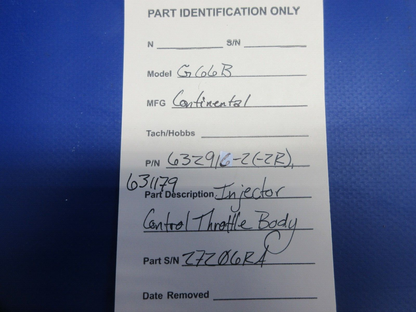 PART IDENTIFICATION ONLY
N S/N
Model G66B
MFG Continental
Tach/Hobbs
P/N 632916-2(-2R),
631179
Part Description Injector
Control Throttle Body
Part S/N 27206RA
Date Removed